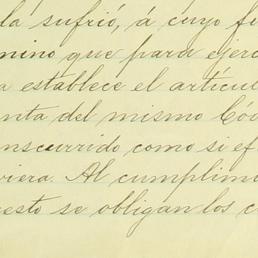 la sufrió, á cuyo fi
mino que para ejerc
a establece el artícul
nta del mismo Cód
nscurrido como si ef
viera. Al cumplimi
uesto se obligan los c